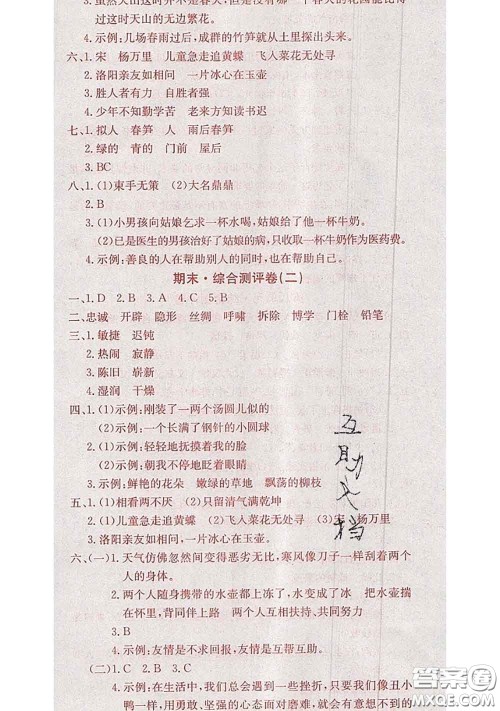 3.示例:虽然天山这时并不是春天,但有哪一个春天的花园能比得
过这时天山的无边繁花。
4.示例:几场春雨过后,成群的竹笋就从土里探出头来。
六、1.宋 杨万里 儿童急走追黄蝶 飞入菜花无处寻
2.洛阳亲友如相问 一片冰心在玉壶
3.胜人者有力 自胜者强
4.少年不知勤学苦 老来方知读书迟
七、1.拟人 春笋 人 雨后春笋
2.绿的 青的 门前 屋后
3.BC
八、1.(1)束手无策 (2)大名鼎鼎
2.B
3.(1)小男孩向姑娘乞求一杯水喝,姑娘给了他一杯牛奶。
(2)已是医生的男孩治好了姑娘的病,只收取一杯牛奶作为医药费。
4.示例:善良的人在帮助别人的同时,也在帮助自己。
期末·综合测评卷(二)
一、1.D 2.B 3.A 4.C 5.B
二、忠诚 开辟 隐形 丝绸 呼啸 拆除 博学 门栓 铅笔
三、1.敏捷 迟钝
2.热闹 寂静
3.陈旧 崭新
4.湿润 干燥
四、1.(1)示例:刚装了一两个汤圆儿似的
(2)示例:一个长满了钢针的小圆球
2.(1)示例:轻轻地抚摸着我的脸
(2)示例:朝我不停地眨着眼睛
3.示例:鲜艳的花朵 嫩绿的草地 飘荡的柳枝
五、1.(1)相看两不厌 (2)只留清气满乾坤
2.(1)儿童急走追黄蝶 (2)飞入菜花无处寻 (3)宋 杨万里
3.洛阳亲友如相问,一片冰心在玉壶。
六、(一)1.天气仿佛忽然间变得恶劣无比,寒风像刀子一样刮着两个
人的身体。
2.两个人随身携带的水壶都上冻了,水冻住了 把水壶揣
在怀里,背同伴上路 两个人互相扶持、共同努力
3.B
4.示例:友情是不求回报,友情是互帮互助。
(二)1.C 2.B 3.C
4.示例:在生活中,我们总会遇到一些挫折,只要我们像丑小
鸭一样,用勇敢、坚强的心态面对磨难,就会有意想不到的
互助文档
答案圈
MXQE.COM